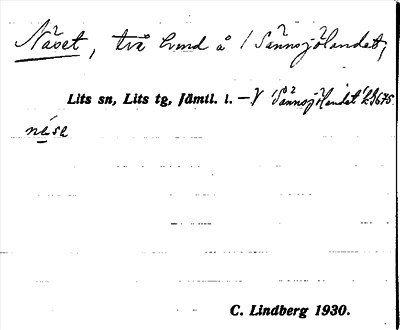 Näset, två hmd å 1 Sännsjölandet,
Lits sn, Lits tg, Jämtl. l. — V Sännsjölandet
nése
C. Lindberg 1930.